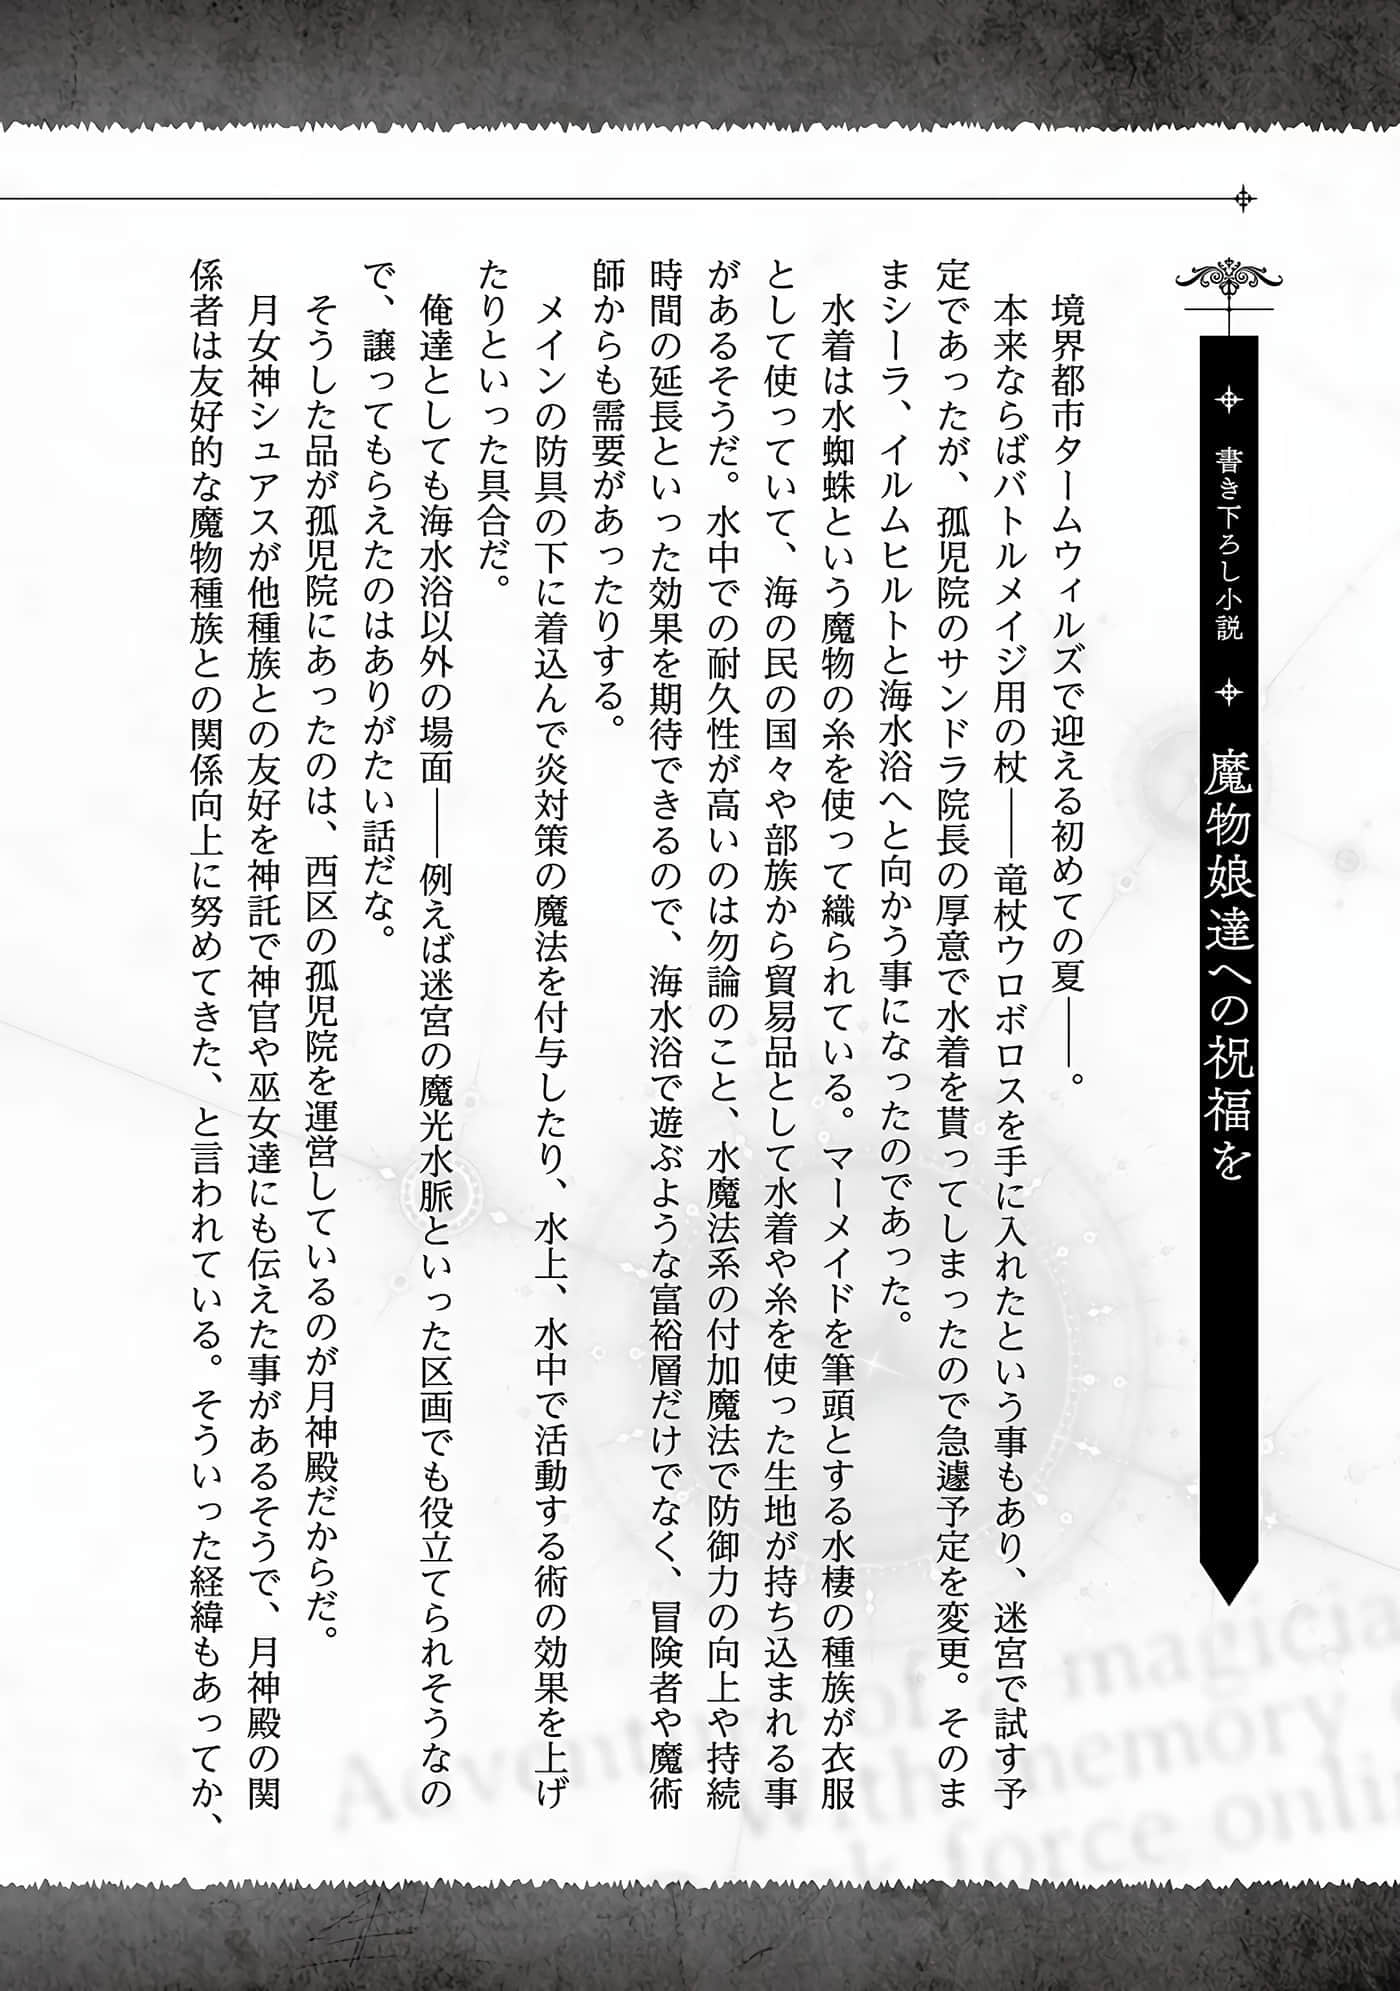 書き下ろし小説 魔物娘達への祝福を
境界都市タームウィルズで迎える初めての夏――。
本来ならばバトルメイジ用の杖――竜杖ウロボロスを手に入れたという事もあり、迷宮で試す予
定であったが、孤児院のサンドラ院長の厚意で水着を貰ってしまったので急遽予定を変更。そのま
まシーラ、イルムヒルトと海水浴へと向かう事になったのであった。
水着は水蜘蛛という魔物の糸を使って織られている。マーメイドを筆頭とする水棲の種族が衣服
として使っていて、海の民の国々や部族から貿易品として水着や糸を使った生地が持ち込まれる事
があるそうだ。水中での耐久性が高いのは勿論のこと、水魔法系の付加魔法で防御力の向上や持続
時間の延長といった効果を期待できるので、海水浴で遊ぶような富裕層だけでなく、冒険者や魔術
師からも需要があったりする。
メインの防具の下に着込んで炎対策の魔法を付与したり、水上、水中で活動する術の効果を上げ
たりといった具合だ。
俺達としても海水浴以外の場面――例えば迷宮の魔光水脈といった区画でも役立てられそうなの
で、譲ってもらえたのはありがたい話だな。
そうした品が孤児院にあったのは、西区の孤児院を運営しているのが月神殿だからだ。
月女神シュアスが他種族との友好を神託で神官や巫女達にも伝えた事があるそうで、月神殿の関
係者は友好的な魔物種族との関係向上に努めてきた、と言われている。そういった経緯もあってか、
Adventure of a magicia
With memory
force onli